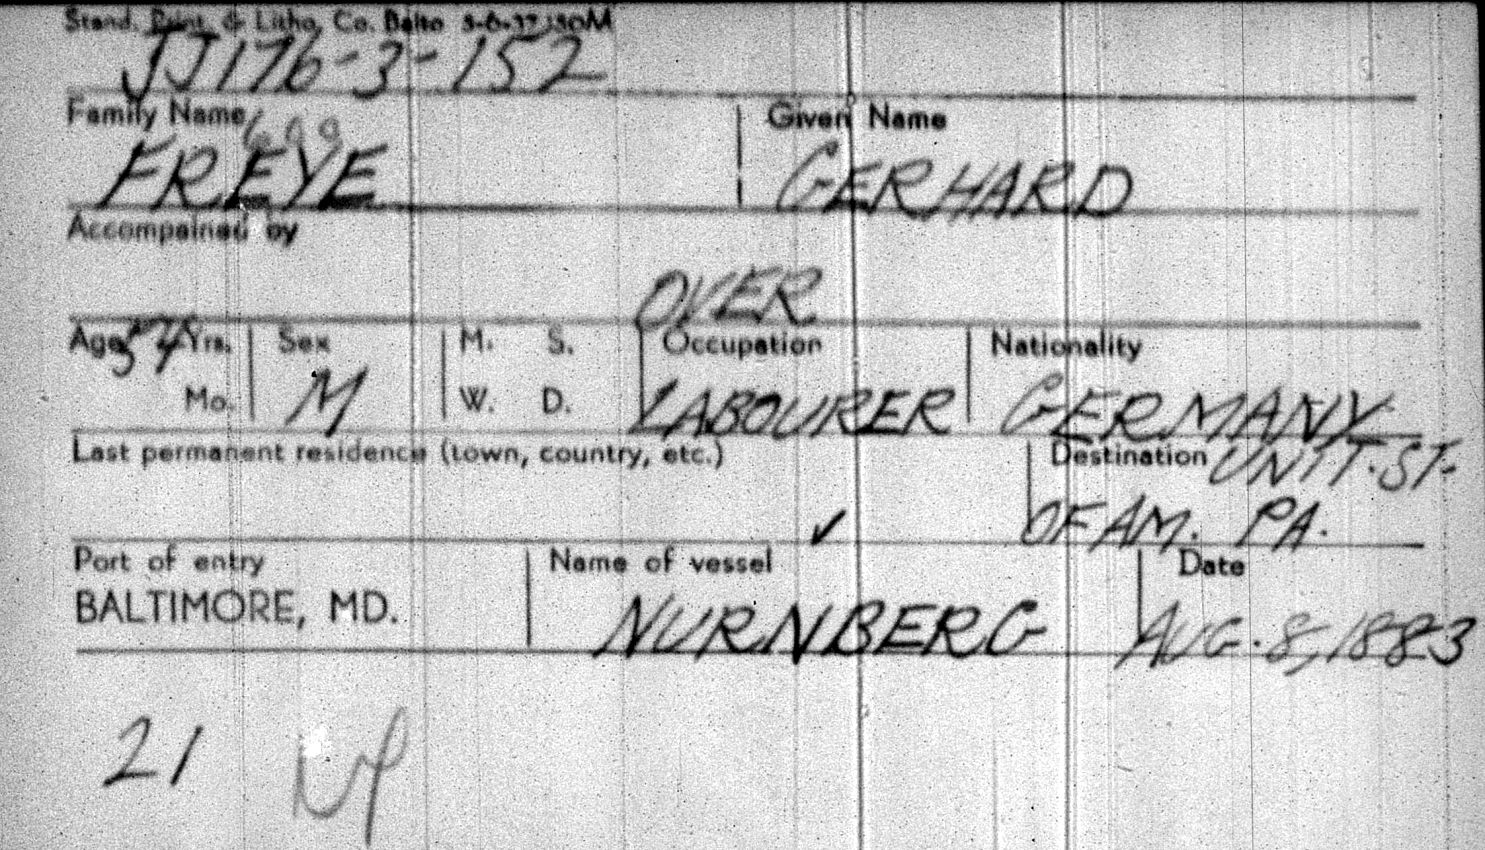 Stand. Print. & Litho. Co. Balto 5-6-37 150M
JJ176-3-152
Family Name Given Name
600
FREYE GERHARD
Accompained by
OVER
Age 54 Yrs. Sex M. S. Occupation Nationality
Mo. M W. D. LABOURER GERMANY
Last permanent residence (town, country, etc.) Destination UNIT. ST.
OF AM. PA.
Port of entry Name of vessel Date
BALTIMORE, MD. NURNBERG AUG. 8, 1883
21